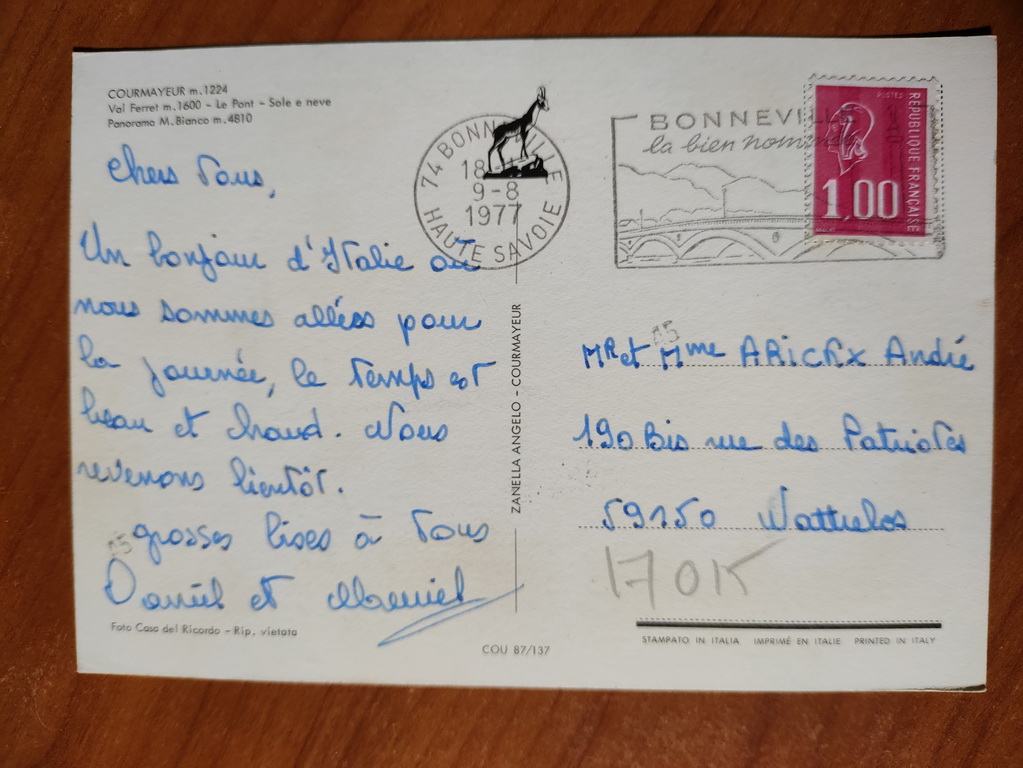 COURMAYEUR m.1224
Val Ferret m.1600 - Le Pont - Sole e neve
Panorama M. Bianco m.4810
Chers Tous,
Un bonjour d'Italie où
nous sommes allées pour
la journée, le temps est
beau et chaud. Nous
revenons bientôt.
grosses bises à Tous
Daniel et
Foto Casa del Ricordo - Rip. vietata
74 BONNEVILLE
18
9-8
1977
HAUTE SAVOIE
ZANELLA ANGELO - COURMAYEUR
COU 87/137
BONNEVILLE
la bien nommée
POSTES
RÉPUBLIQUE FRANÇAISE
1,00
Mr et Mme ARICKX André
190 Bis rue des Patriotes
59150 Wattrelos
170K
STAMPATO IN ITALIA IMPRIMÉ EN ITALIE PRINTED IN ITALY